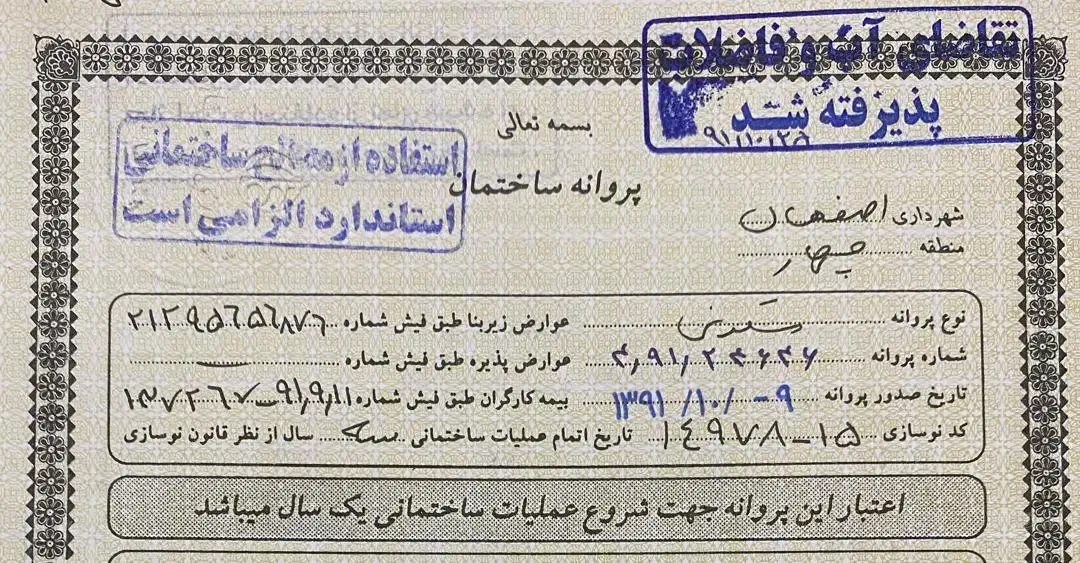 تقاضای آب و فاضلاب
پذیرفته شد
بسمه تعالی
استفاده از مصالح ساختمانی
استاندارد الزامی است
پروانه ساختمان
شهرداری اصفهان
منطقه چهار
نوع پروانه ........ عوارض زیربنا طبق فیش شماره
شماره پروانه ۴,۹۱,۲۴۶۴۶ عوارض پذیره طبق فیش شماره
تاریخ صدور پروانه ۹ - /۱۰/ ۱۳۹۱ بیمه کارگران طبق فیش شماره
کد نوسازی ۱۵-۱۴۹۷۸ تاریخ اتمام عملیات ساختمانی سه سال از نظر قانون نوسازی
اعتبار این پروانه جهت شروع عملیات ساختمانی یک سال میباشد